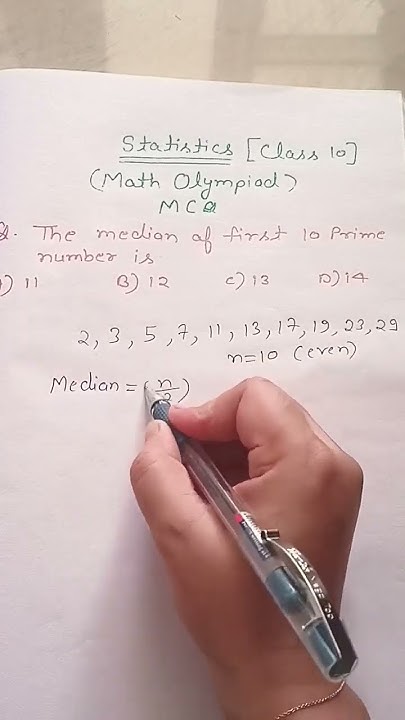 Statistics [Class 10]
(Math Olympiad)
MCQ
Q. The median of first 10 Prime
number is
A) 11 B) 12 C) 13 D) 14
2, 3, 5, 7, 11, 13, 17, 19, 23, 29
n=10 (even)
Median = (n/2)